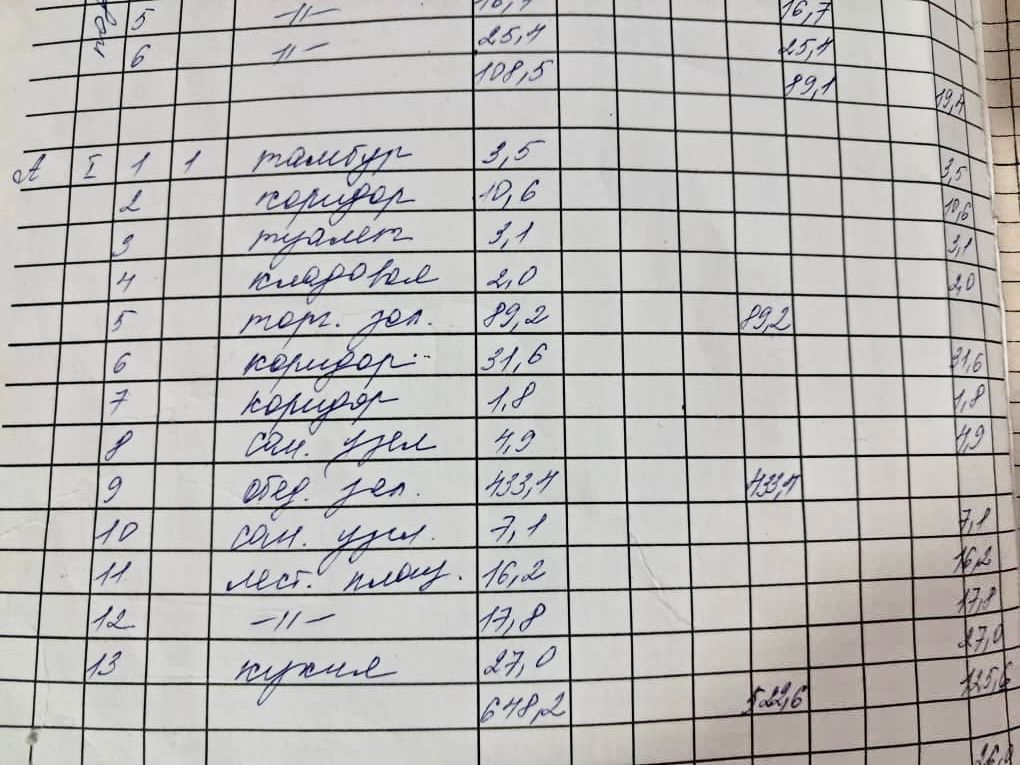 5 -//- 16,7 16,7
6 -//- 25,4 25,4
108,5 89,1 19,4
А I 1 1 тамбур 3,5 3,5
2 коридор 10,6 10,6
3 туалет 3,1 3,1
4 кладовая 2,0 2,0
5 торг. зал. 89,2 89,2
6 коридор 31,6 31,6
7 коридор 1,8 1,8
8 сан. узел 4,9 4,9
9 обед. зал. 433,4 433,4
10 сан. узел. 7,1 7,1
11 лест. площ. 16,2 16,2
12 -//- 17,8 17,8
13 кухня 27,0 27,0
648,2 522,6 125,6